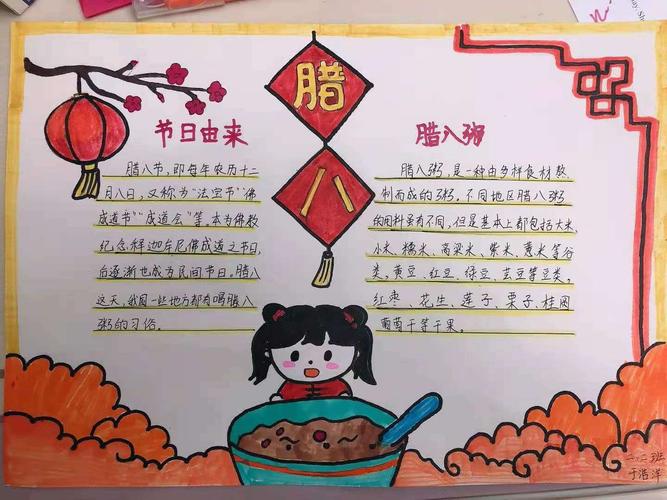 腊
八
节日由来
腊八节,即每年农历十二
月八日,又称为“法宝节”“佛
成道节”“成道会”等。本为佛教
纪念释迦牟尼佛成道之节日,
后逐渐也成为民间节日。腊八
这天,我国一些地方都有喝腊八
粥的习俗。
腊八粥
腊八粥,是一种由多样食材熬
制而成的粥。不同地区腊八粥
的用料虽有不同,但是基本上都包括大米、
小米、糯米、高粱米、紫米、薏米等谷
类,黄豆、红豆、绿豆、芸豆等豆类,
红枣、花生、莲子、栗子、桂圆
葡萄干等干果。
二、二班
于浩洋